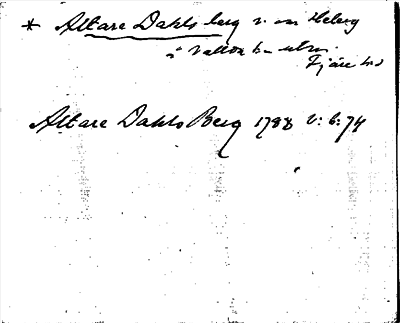 * Altare Dahls berg v. om Heberg
i Vallda
Fjäre hd
Altare Dahls Berg 1788 v: b: 74